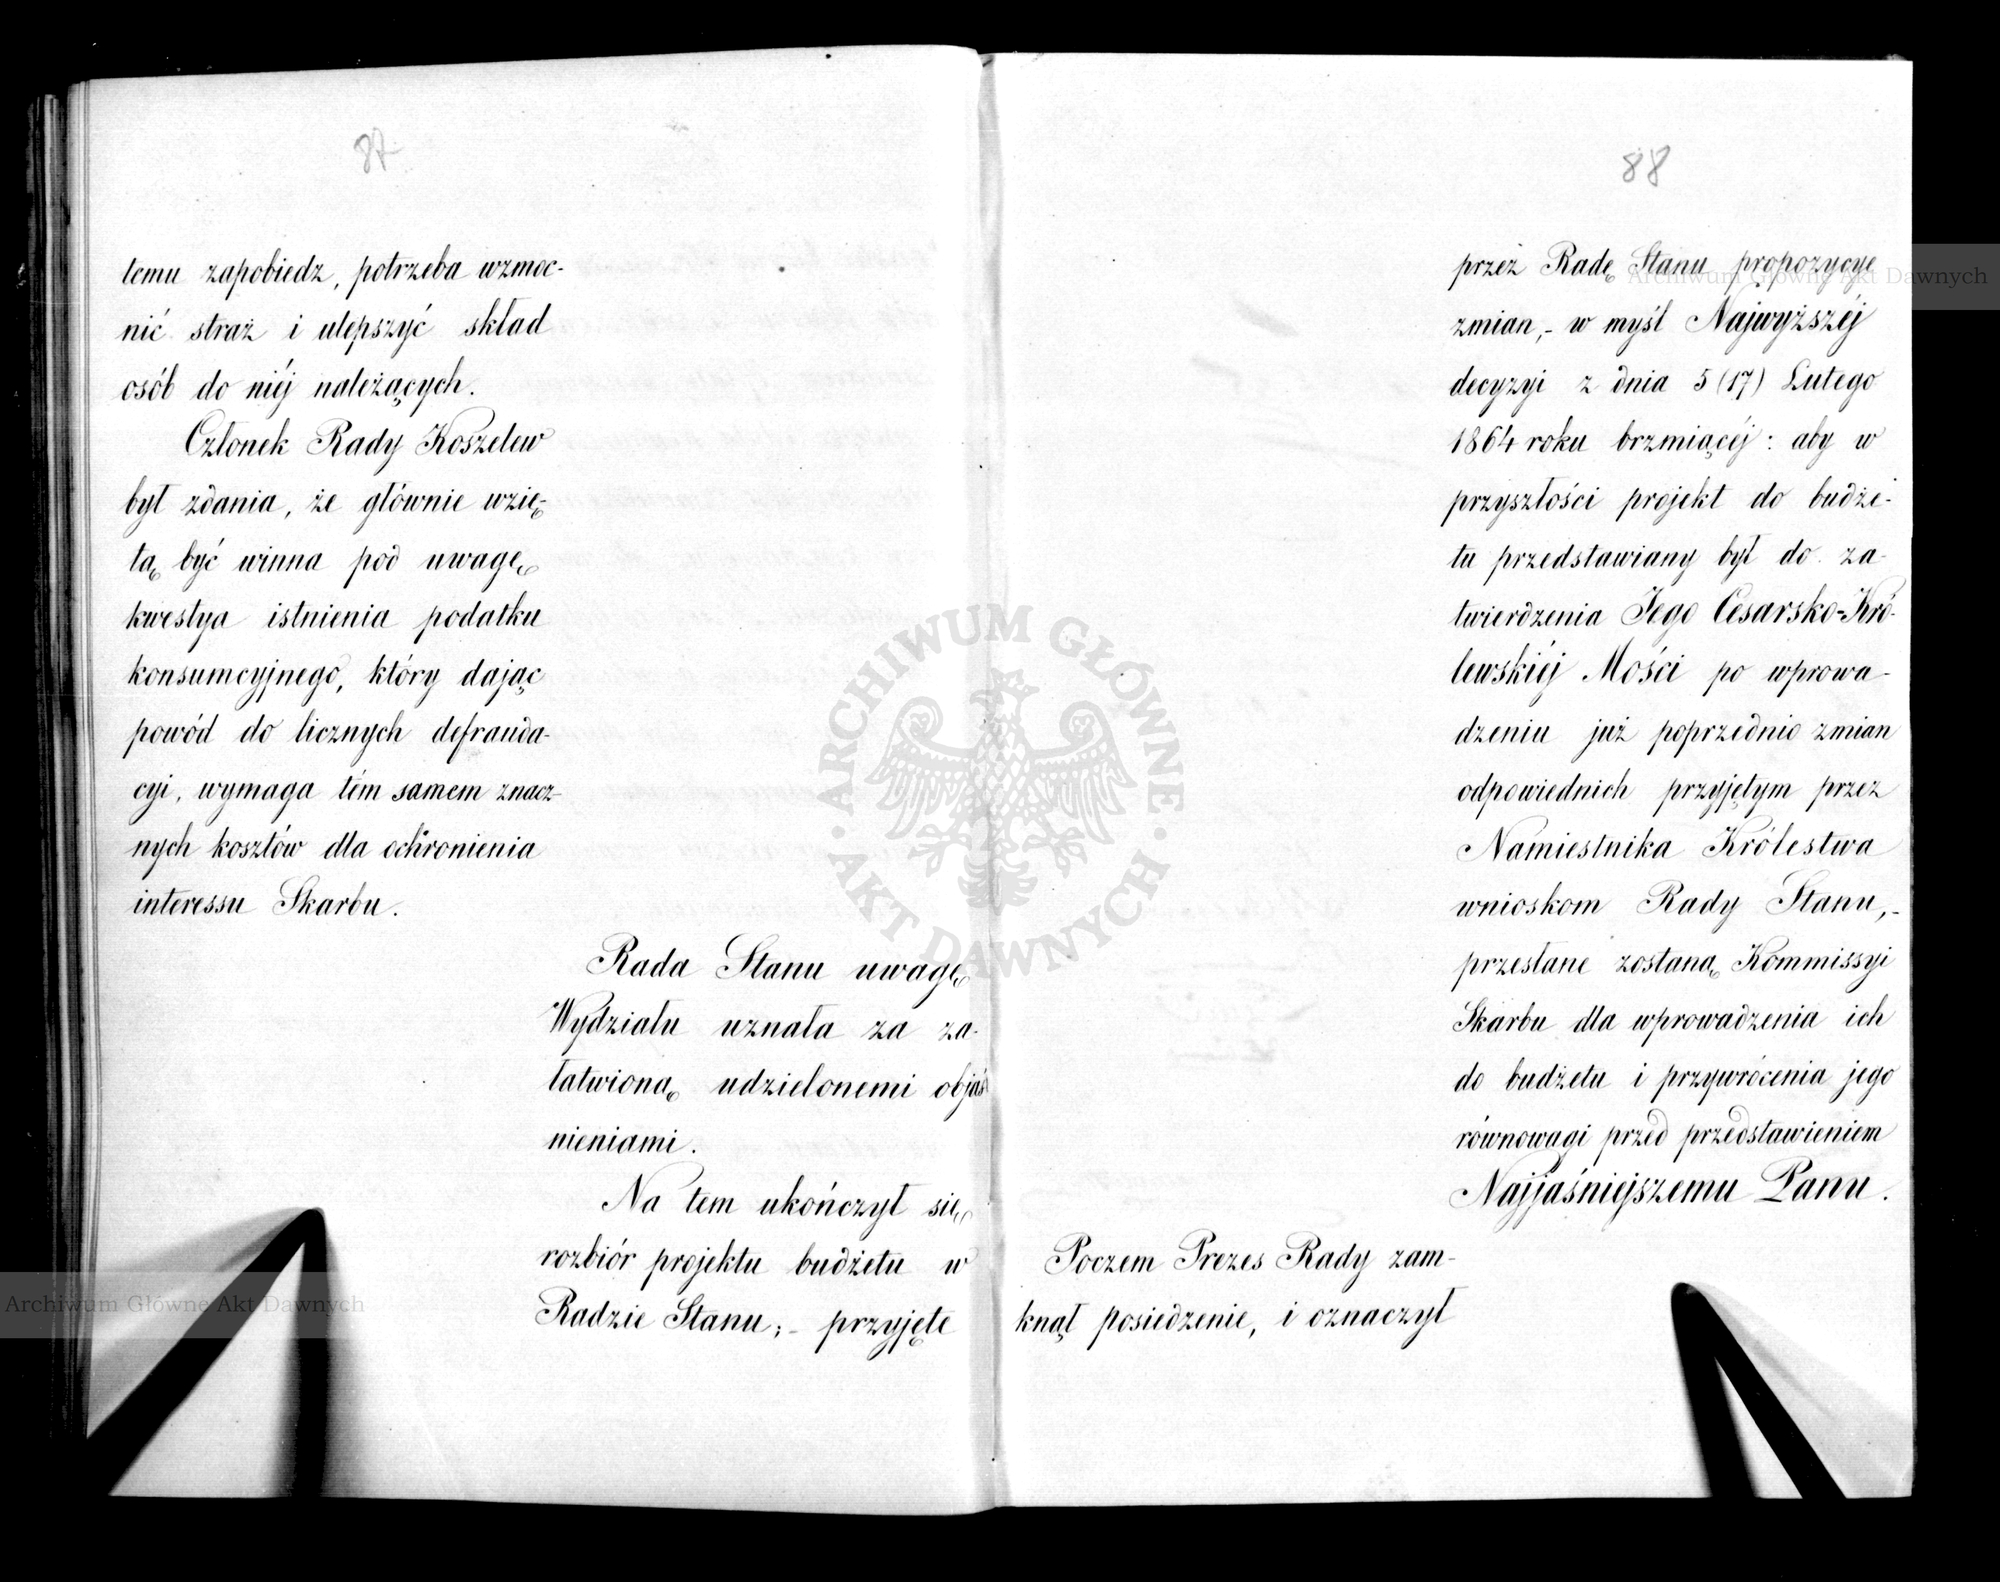 87
temu zapobiedz, potrzeba wzmoc-
nić straż i ulepszyć skład
osób do niéj należących.
Członek Rady Koszelew
był zdania, że głównie wzię-
tą być winna pod uwagę
kwestya istnienia podatku
konsumcyjnego, który dając
powód do licznych defrauda-
cyi, wymaga tém samem znacz-
nych kosztów dla ochronienia
interessu Skarbu.
Rada Stanu uwagę
Wydziału uznała za za-
łatwioną udzielonemi objaś
nieniami.
Na tem ukończył się
rozbiór projektu budżetu w
Radzie Stanu; - przyjęte
88
przez Radę Stanu propozycye
zmian, - w myśl Najwyższéj
decyzyi z dnia 5 (17) Lutego
1864 roku brzmiącéj: aby w
przyszłości projekt do budże-
tu przedstawiany był do za-
twierdzenia Jego Cesarsko=Kró-
lewskiéj Mości po wprowa-
dzeniu już poprzednio zmian
odpowiednich przyjętym przez
Namiestnika Królestwa
wnioskom Rady Stanu, -
przesłane zostaną Kommissyi
Skarbu dla wprowadzenia ich
do budżetu i przywrócenia jego
równowagi przed przedstawieniem
Najjaśniejszemu Panu.
Poczem Prezes Rady zam-
knął posiedzenie, i oznaczył
ARCHIWUM GŁÓWNE
AKT DAWNYCH
Archiwum Główne Akt Dawnych
Archiwum Główne Akt Dawnych